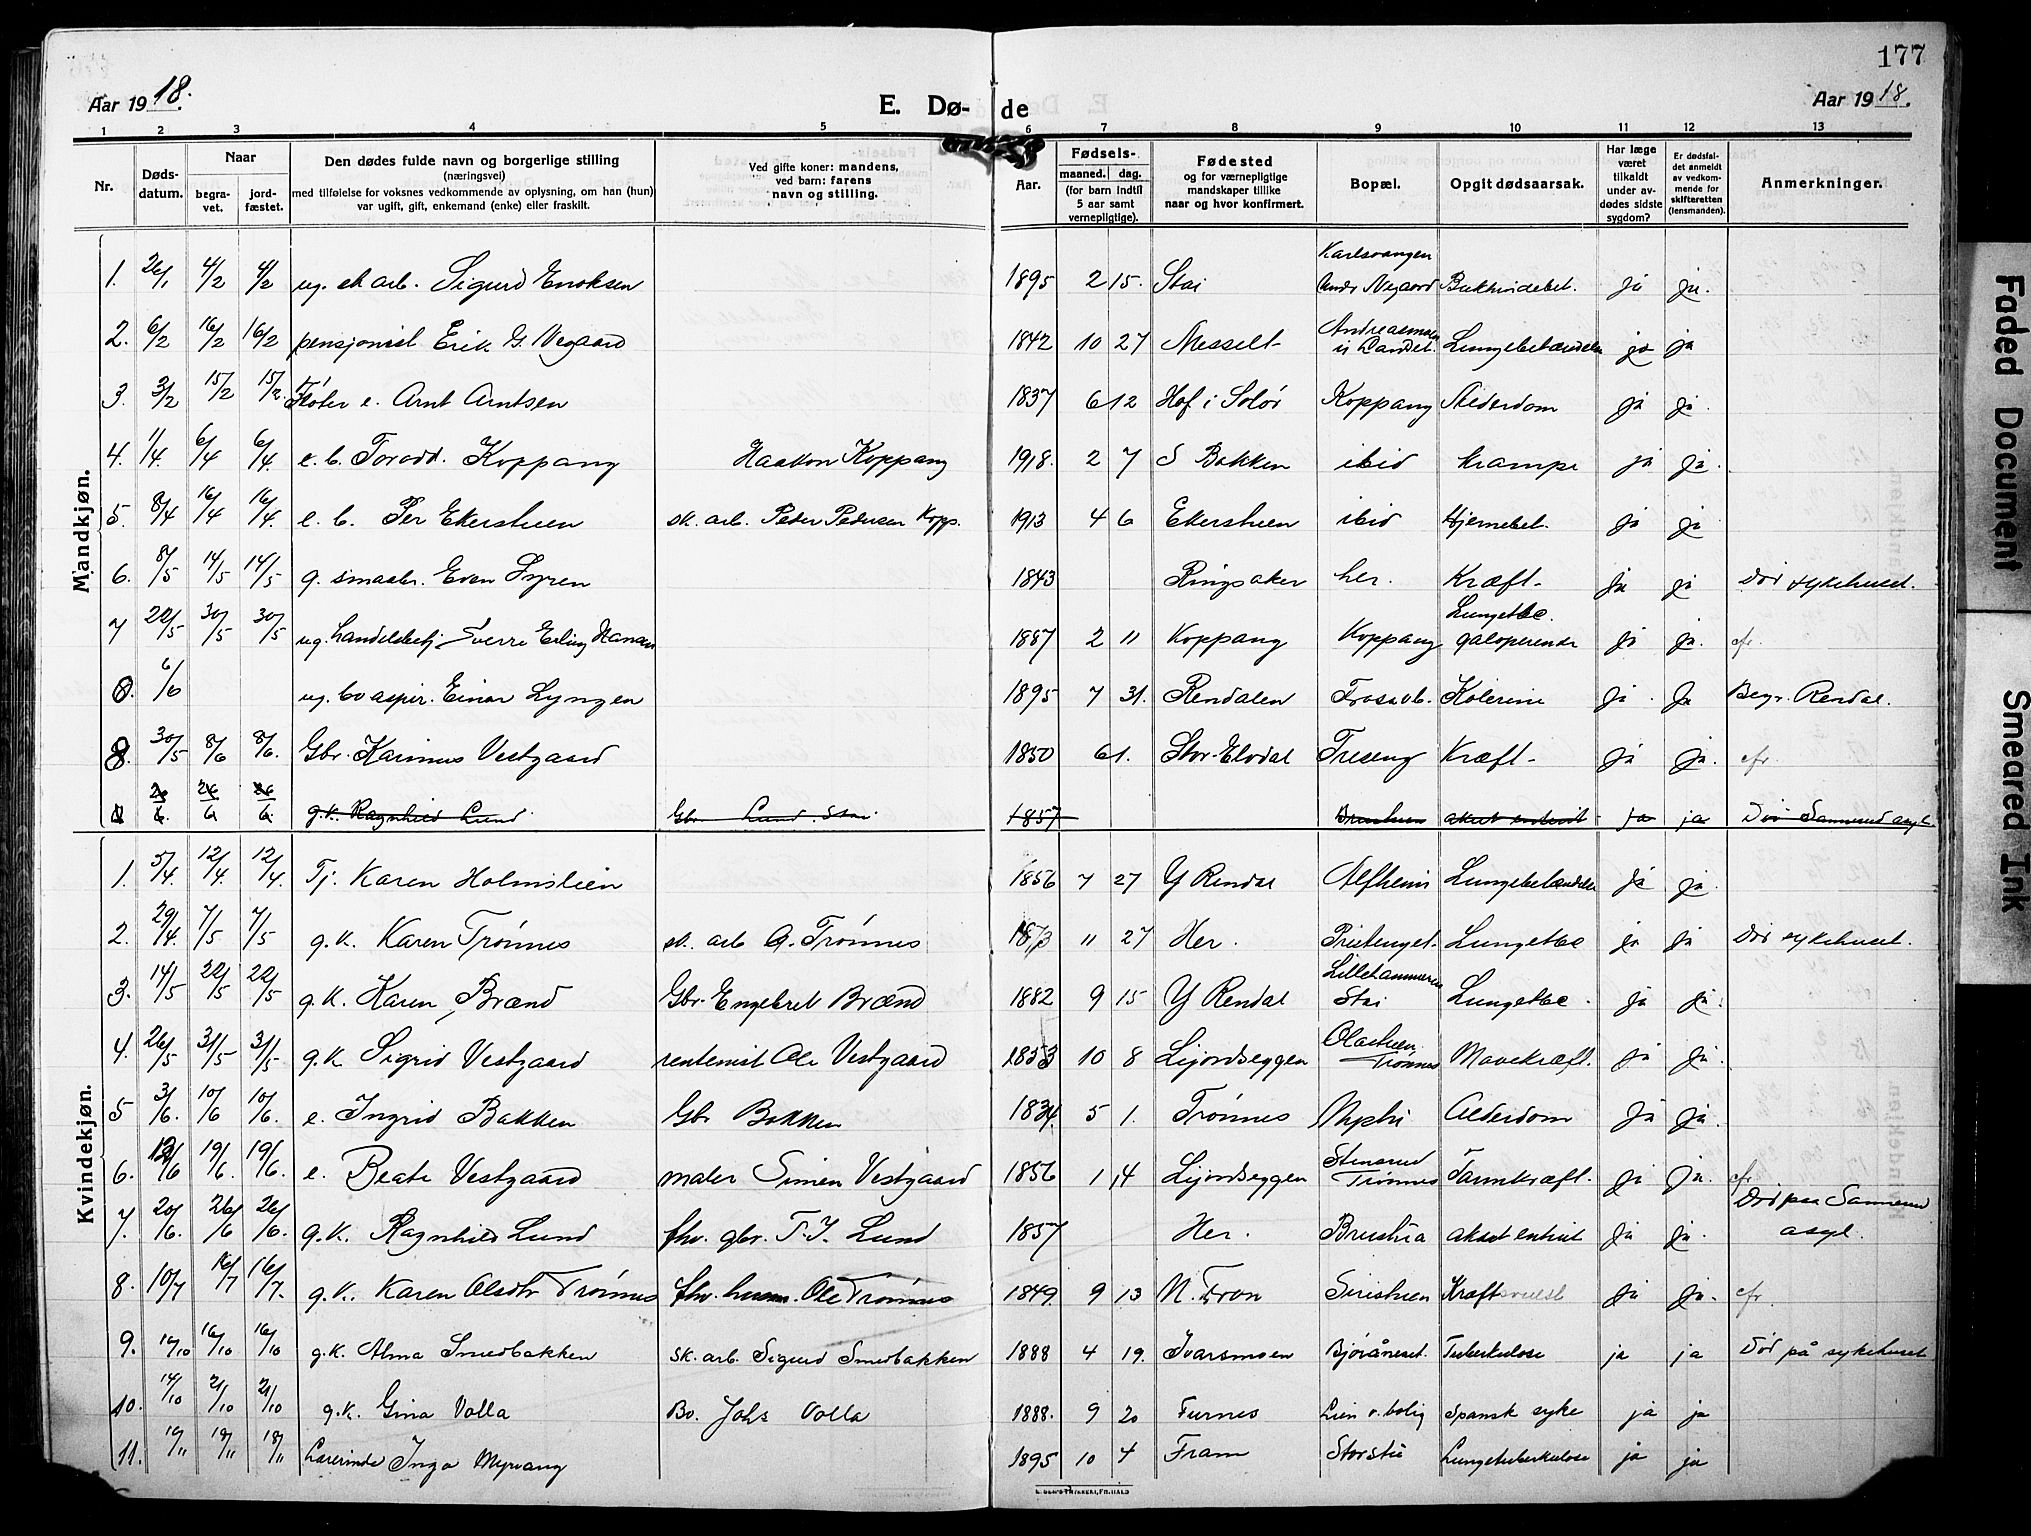 177
Aar 1918.
E. Dø-
de
Aar 1918.
1 2 3 4 5 6 7 8 9 10 11 12 13
Nr.
Døds-
datum.
Naar
begra-
vet.
jord-
fæstet.
Den dødes fulde navn og borgerlige stilling
(næringsvei)
med tilføielse for voksnes vedkommende av oplysning, om han (hun)
var ugift, gift, enkemand (enke) eller fraskilt.
Ved gifte koner: mandens,
ved barn: farens
navn og stilling.
Aar.
Fødsels-
maaned. dag.
(for barn indtil
5 aar samt
vernepligtige).
Fødested
og for værnepligtige
mandskaper tillike
naar og hvor konfirmert.
Bopæl.
Opgit dødsaarsak.
Har læge
været
tilkaldt
under av-
dødes sidste
sygdom?
Er dødsfal-
det anmeldt
av vedkom-
mende for
skifteretten
(lensmanden).
Anmerkninger.
Mandkjøn.
1. 26/1 4/2 4/2 ug. sk arb. Sigurd Enoksen 1895 2 15. Stai Karlsvangen Bukhindebet. ja ja.
2. 6/2 16/2 16/2 pensjonist Erik G. Vegaard 1842 10 27 Messelt Lungebetændelse ja ja
3. 3/2 15/2 15/2. Fløter e. Arnt Arntsen 1837 6 12 Hof i Solør Koppang Alderdom ja ja.
4. 1/4. 6/4 6/4. e. b. Torodd. Koppang Haakon Koppang 1918. 2 7 S Bakken ibid krampe ja ja.
5. 8/4 16/4 16/4. e. b. Per Ekerstuen sk. arb. Peder Pedersen Kopp. 1913 4 6 Ekerstuen ibid Hjernebet. ja ja
6. 8/5 14/5 14/5 g. smaabr. Even Fyren 1843 Ringsaker her. Kræft ja ja Død sykehuset.
7 22/5 30/5 30/5 ug. handelsbetj. Sverre Erling Hansen 1887 2 11 Koppang Koppang Lungetbc. galoperende ja ja. efr.
0. 6/6 ug. bv aspir. Einar Lyngen 1895 7 31. Rendalen Kolerine ja. ja Begr. Rendal.
8. 30/5 8/6 8/6. Gbr. Karinus Vestgaard 1850 6 1. Stor-Elvdal Treseng Kræft ja ja. efr.
26/6. 26/6 26/6. g.k. Ragnhild Lund. Gbr Lund. Stai. 1857 Brustuen akut enterit ja ja Død Sannerud asyl.
Kvindekjøn.
1. 5/4. 12/4. 12/4. Tj. Karen Holmstien 1856 7 27 Y Rendal Alfheim Lungebetændelse ja ja.
2. 29/4. 7/5 7/5 g. k. Karen Trønnes sk. arb O. Trønnes 1873 11 27 Her. Prestenget. Lungetbc ja ja Død sykehuset.
3. 14/5 22/5 22/5 g. k. Karen Brænd Gbr. Engebret Brænd 1882 9 15 Y Rendal Lillehammeren Stai Lungetbc. ja ja.
4. 26/5 31/5 31/5 g. k Sigrid Vestgaard rentenist Ole Vestgaard 1853 10 8 Lijordseggen Olastuen Trønnes Mavekræft. ja ja.
5 3/6. 10/6 10/6. e. Ingrid Bakken Gbr Bakken 1834. 5 1. Trønnes Alderdom ja ja.
6. 12/6 19/6. 19/6. e. Beate Vestgaard maler Simen Vestgaard 1856 1 14 Lijordseggen Stensrud Trønnes Tarmkræft. ja ja. efr.
7. 20/6. 26/6 26/6. g. k. Ragnhild Lund fhv. gbr. T. J. Lund 1857 Her. Brustua akut enterit ja ja. Død paa Sannerud asyl.
8. 10/7 16/7 16/7. g. k. Karen Olsdtr Trønnes fhv. husm. Ole Trønnes 1849. 9 13 N. Fron Siristuen Kræftsvulst ja ja. efr.
9. 10/10 16/10 16/10 g. k. Alma Smedbakken sk. arb. Sigurd Smedbakken 1888 4 19. Ivarsmoen Bjøråneset. Tuberkulose ja ja Død på sykehuset
10. 14/10 21/10 21/10 g. k. Gina Volla Bv. Johs Volla 1888. 9 20 Furnes Lien v. bolig Spansk syke ja ja
11. 10/11 18/11 18/11 Lærerinde Inga Myrvang 1895 10 4 Fram Storstu Lungetuberkulose ja ja
Faded Document
Smeared Ink